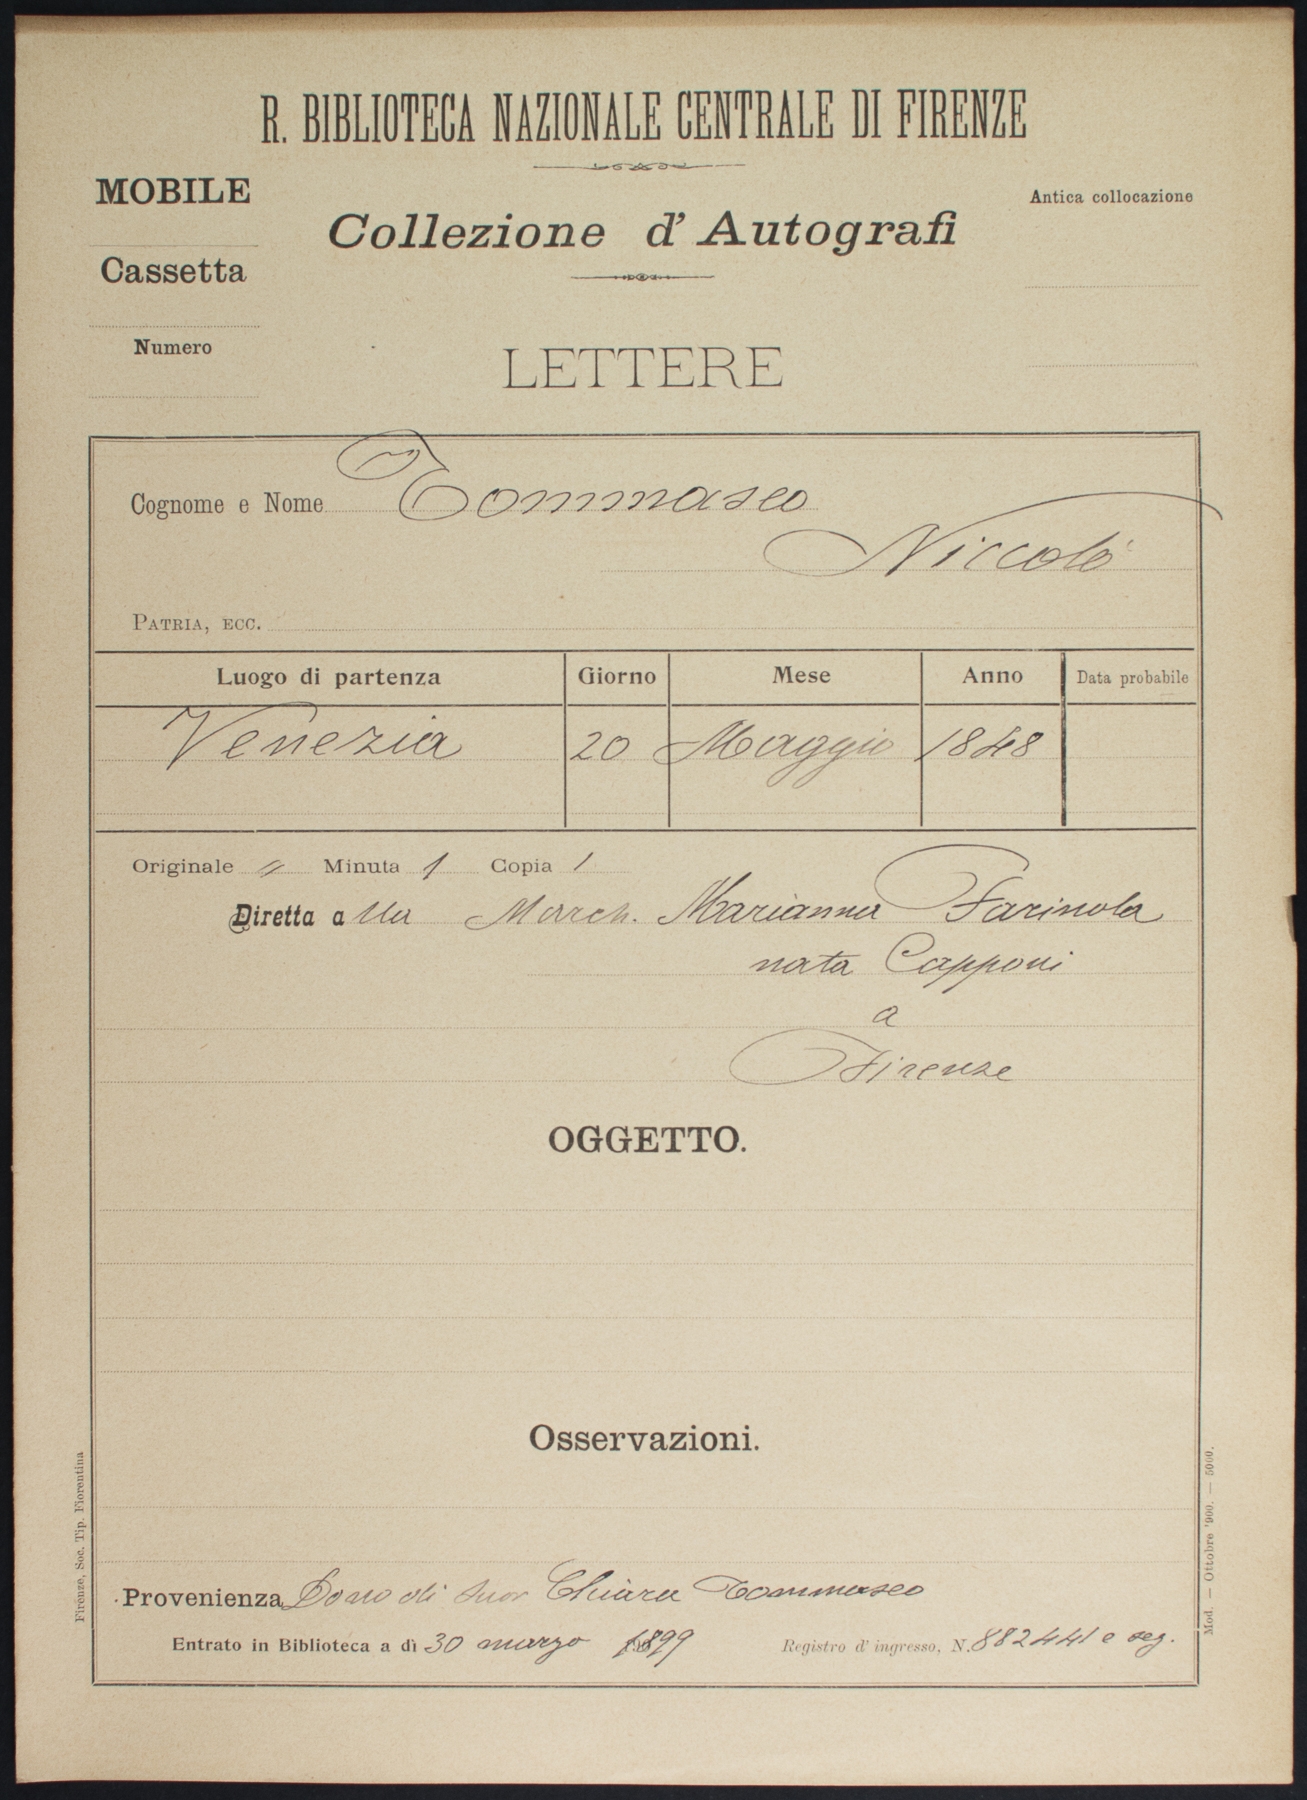 R. BIBLIOTECA NAZIONALE CENTRALE DI FIRENZE
MOBILE
Collezione d' Autografi
Antica collocazione
Cassetta
Numero
LETTERE
Cognome e Nome Tommaseo
Niccolò
PATRIA, ECC.
Luogo di partenza Giorno Mese Anno Data probabile
Venezia 20 Maggio 1848
Originale " Minuta 1 Copia 1
Diretta alla March. Marianna Farinola
nata Capponi
a
Firenze
OGGETTO.
Osservazioni.
Provenienza Dono di Suor Chiara Tommaseo
Entrato in Biblioteca a dì 30 marzo 1899 Registro d' ingresso, N. 882441 e seg.
Firenze, Soc. Tip. Fiorentina
Mod. — Ottobre '900. — 5000.